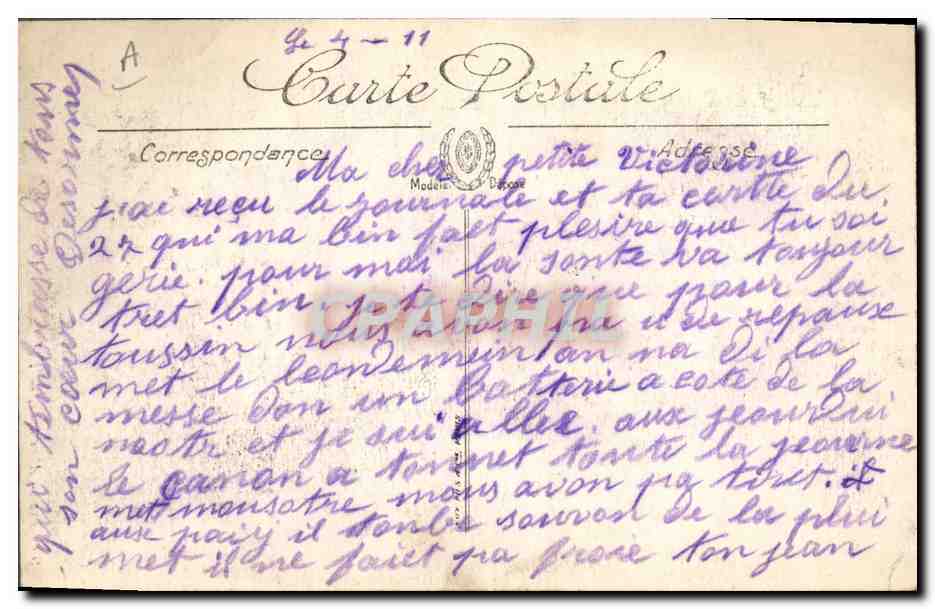 A
Le 4 - 11
Carte Postale
Correspondance
Adresse
Modèle Déposé
Ma cher petite Victorine
j'ai reçu le journale et ta cartte du
27 qui ma bin faet plesire que tu soi
gerie. pour moi la sonte va toujour
tret bin je te dire que pour la
toussin nous avon pa u de repaux
met le leondemein on na di la
messe don un batterie a cote de la
naotr et je sui allee. aux jeourdui
le canon a tonnet toute la jeourne
met nousotre nous avon pa tiret. it
aux paiy il tonbe souvon de la plui
met il ne faiet pa froie ton jean
qui t'embrasse de tous
son coeur Desormey
CPRAPHIL